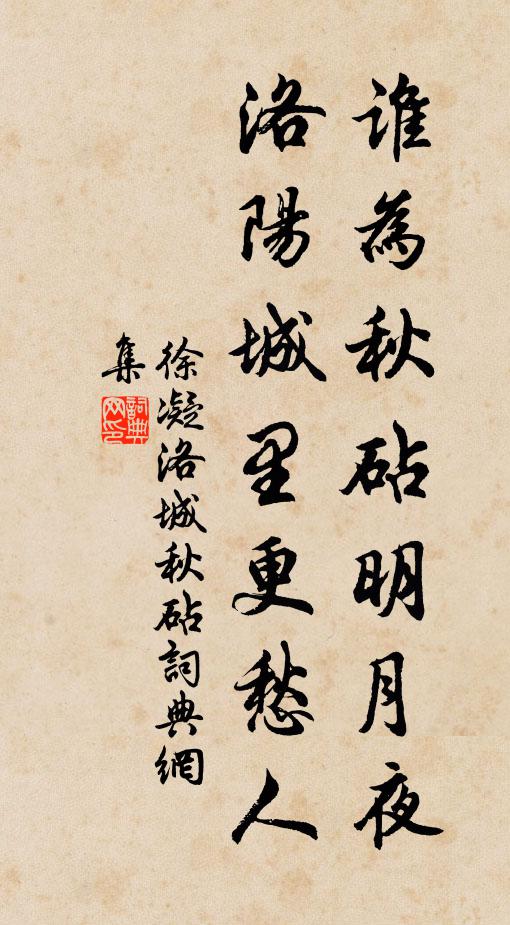 誰為秋砧明月夜
洛陽城里更愁人
徐凝洛城秋砧詞典網
集
詞典網印